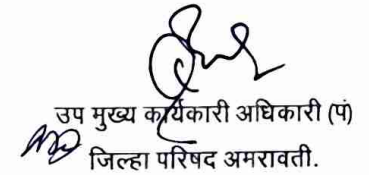 उप मुख्य कार्यकारी अधिकारी (पं)
जिल्हा परिषद अमरावती.